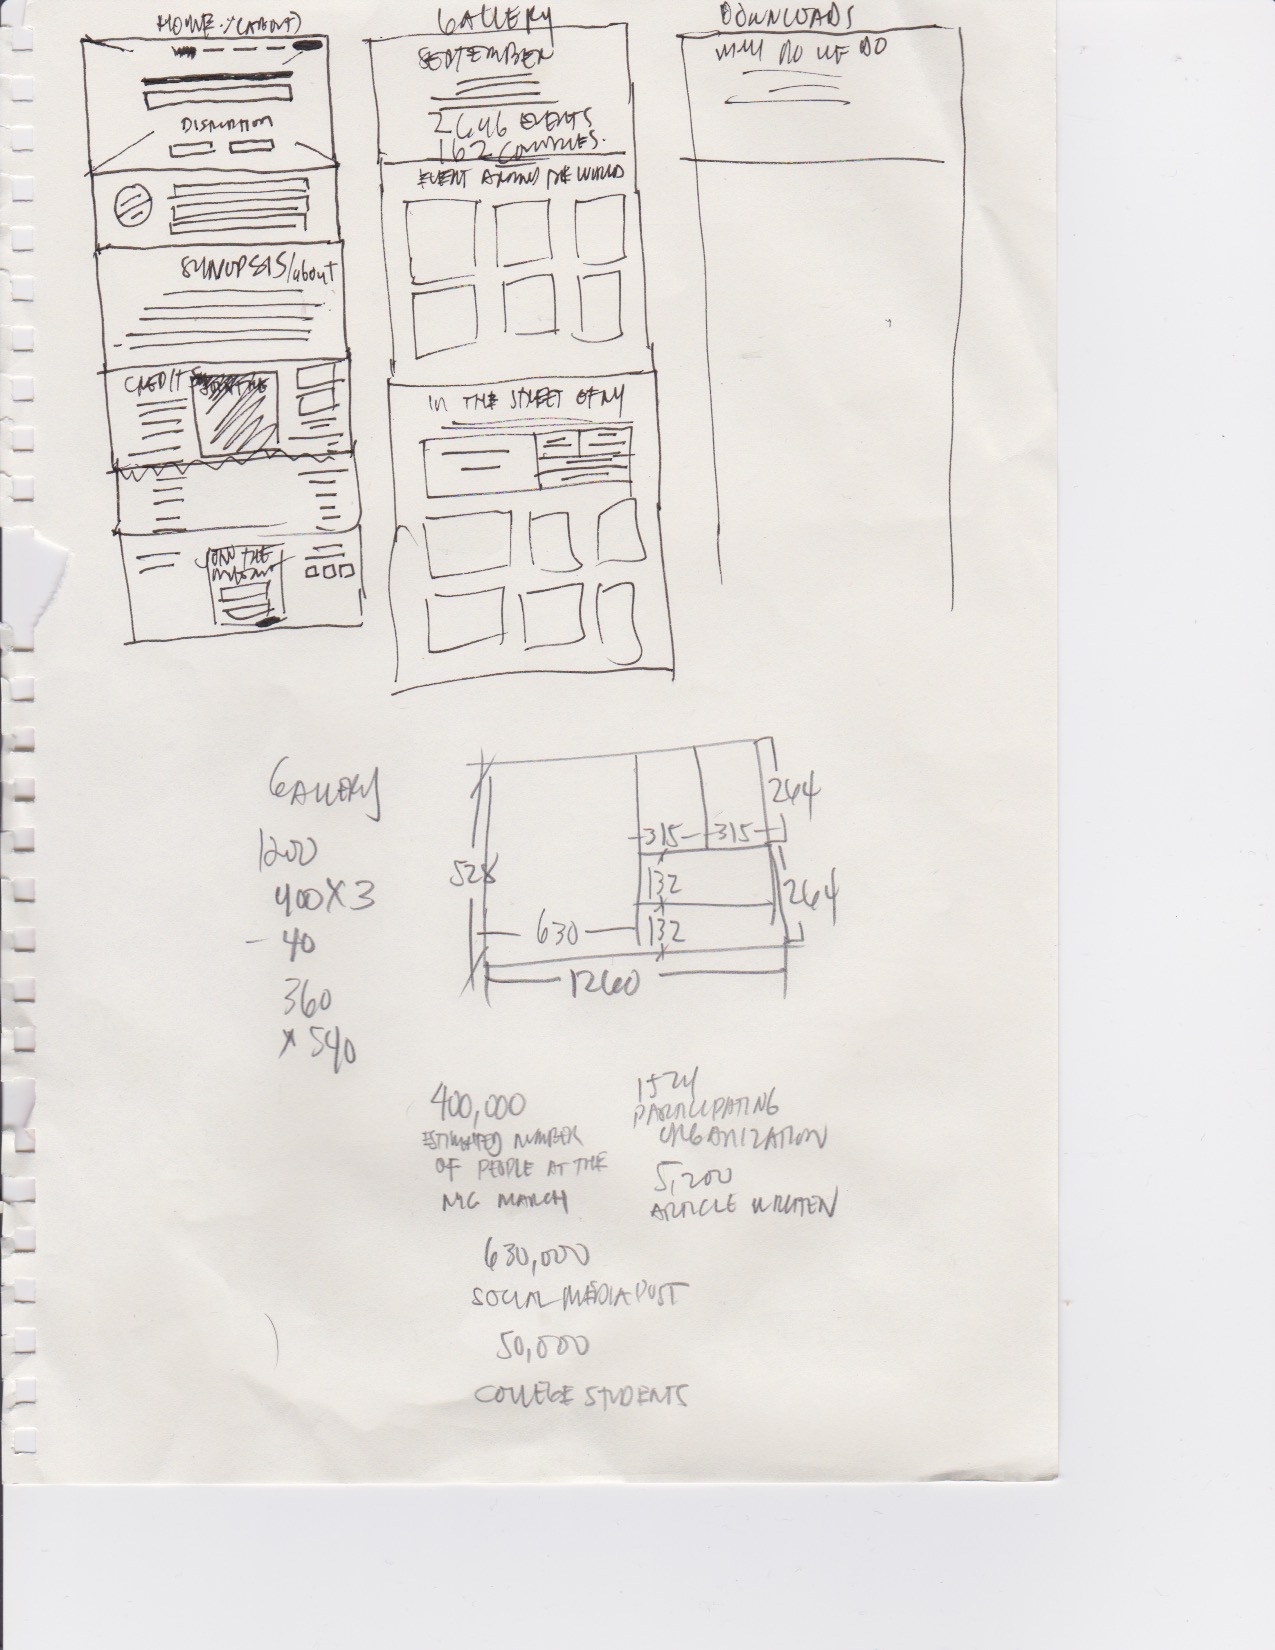 HOME / (ABOUT)
DISRUPTION
SYNOPSIS/about
CREDITS
JOIN THE
GALLERY
SEPTEMBER
2646 EVENTS
162 COUNTRIES.
EVENT AROUND THE WORLD
IN THE STREET OF NY
DOWNLOADS
WHY DO WE DO
GALLERY
1200
400 X 3
- 40
360
X 540
528
630
1260
315 315
132
132
264
264
400,000
ESTIMATED NUMBER
OF PEOPLE AT THE
NYC MARCH
1574
PARTICIPATING
ORGANIZATION
5,200
ARTICLE WRITTEN
630,000
SOCIAL MEDIA POST
50,000
COLLEGE STUDENTS